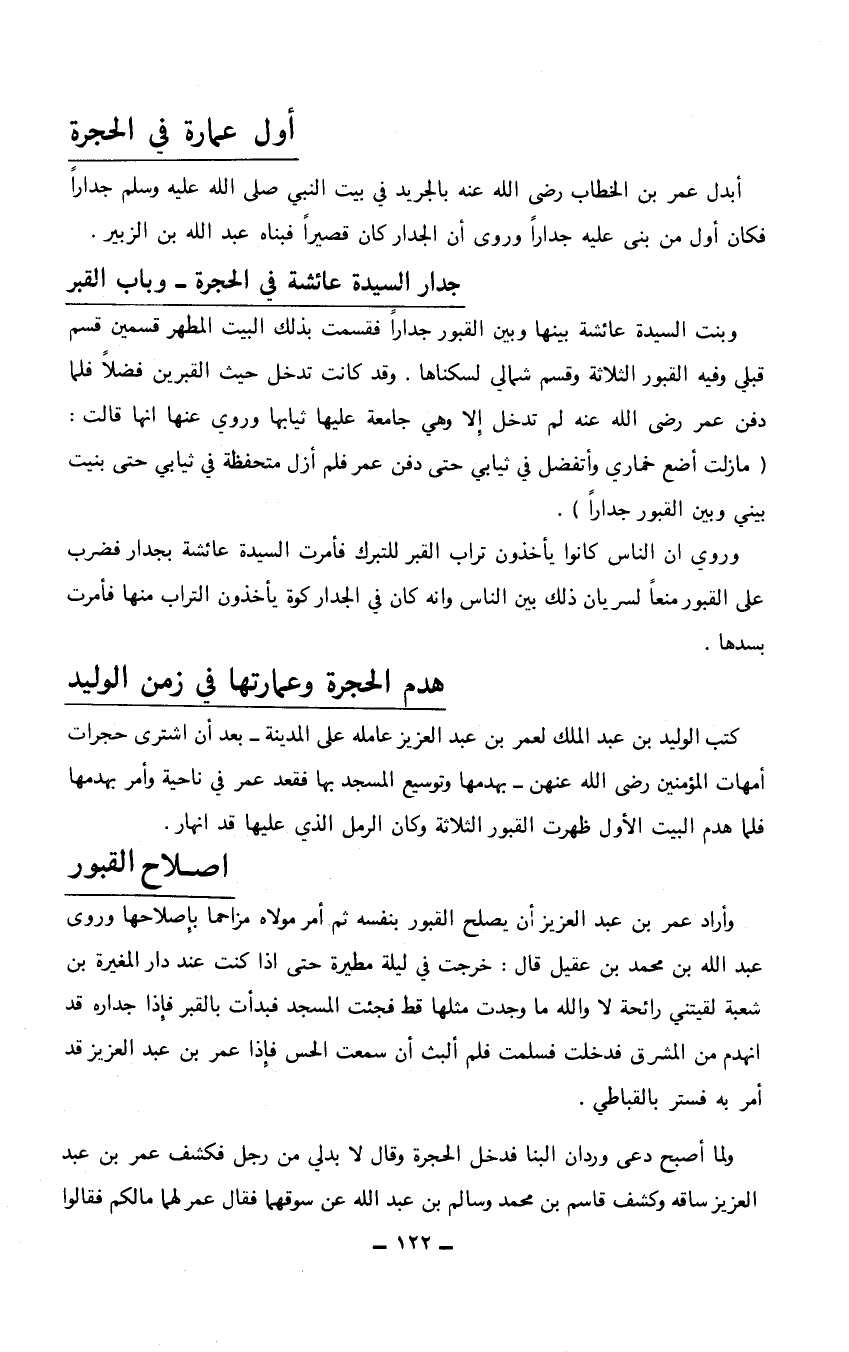 أول عمارة في الحجرة
أبدل عمر بن الخطاب رضى الله عنه بالجريد في بيت النبي صلى الله عليه وسلم جداراً
فكان أول من بنى عليه جداراً وروى أن الجدار كان قصيراً فبناه عبد الله بن الزبير .
جدار السيدة عائشة في الحجرة ـ وباب القبر
وبنت السيدة عائشة بينها وبين القبور جداراً فقسمت بذلك البيت المطهر قسمين قسم
قبلي وفيه القبور الثلاثة وقسم شمالي لسكناها . وقد كانت تدخل حيث القبرين فضلاً فلما
دفن عمر رضى الله عنه لم تدخل إلا وهي جامعة عليها ثيابها وروي عنها انها قالت :
( مازلت أضع خماري وأتفضل في ثيابي حتى دفن عمر فلم أزل متحفظة في ثيابي حتى بنيت
بيني وبين القبور جداراً ) .
وروي ان الناس كانوا يأخذون تراب القبر للتبرك فأمرت السيدة عائشة بجدار فضرب
على القبور منعاً لسريان ذلك بين الناس وانه كان في الجدار كوة يأخذون التراب منها فأمرت
بسدها .
هدم الحجرة وعمارتها في زمن الوليد
كتب الوليد بن عبد الملك لعمر بن عبد العزيز عامله على المدينة ـ بعد أن اشترى حجرات
أمهات المؤمنين رضى الله عنهن ـ بهدمها وتوسيع المسجد بها فقعد عمر في ناحية وأمر بهدمها
فلما هدم البيت الأول ظهرت القبور الثلاثة وكان الرمل الذي عليها قد انهار .
اصلاح القبور
وأراد عمر بن عبد العزيز أن يصلح القبور بنفسه ثم أمر مولاه مزاحما بإصلاحها وروى
عبد الله بن محمد بن عقيل قال : خرجت في ليلة مطيرة حتى اذا كنت عند دار المغيرة بن
شعبة لقيتني رائحة لا والله ما وجدت مثلها قط فجئت المسجد فبدأت بالقبر فإذا جداره قد
انهدم من المشرق فدخلت فسلمت فلم ألبث أن سمعت الحس فإذا عمر بن عبد العزيز قد
أمر به فستر بالقباطي .
ولما أصبح دعى وردان البنا فدخل الحجرة وقال لا بدلي من رجل فكشف عمر بن عبد
العزيز ساقه وكشف قاسم بن محمد وسالم بن عبد الله عن سوقهما فقال عمر لهما مالكم فقالوا
ـ ١٢٢ ـ